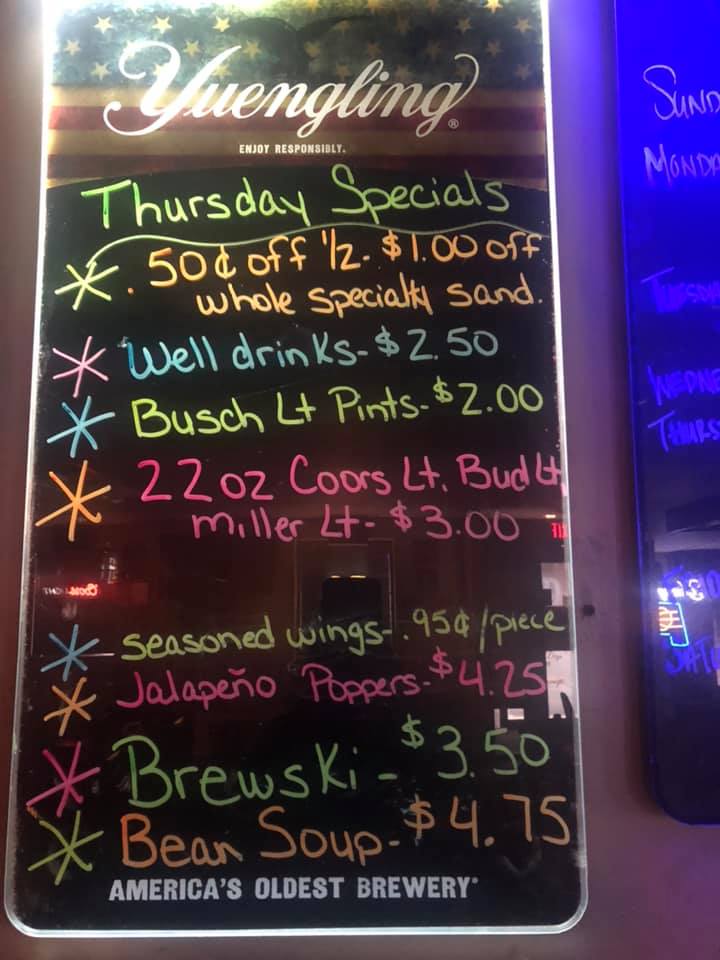 Yuengling®
ENJOY RESPONSIBLY.
Thursday Specials
* .50¢ off 1/2 - $1.00 off
whole specialty sand.
* Well drinks - $2.50
* Busch Lt Pints - $2.00
* 22 oz Coors Lt. Bud Lt
miller Lt - $3.00
* seasoned wings - .95¢/piece
* Jalapeño Poppers - $4.25
* Brewski - $3.50
* Bean Soup - $4.75
AMERICA'S OLDEST BREWERY